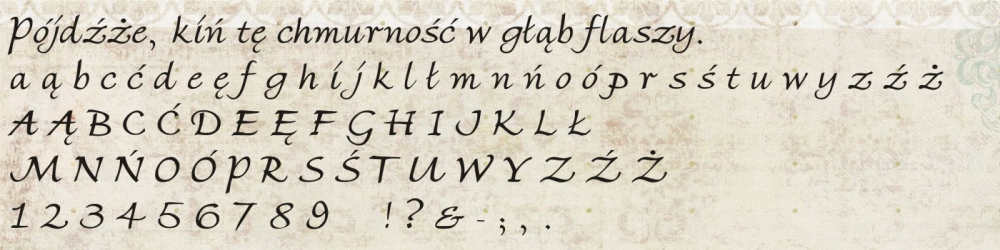 Pójdźże, kiń tę chmurność w głąb flaszy.
a ą b c ć d e ę f g h i j k l ł m n ń o ó p r s ś t u w y z ź ż
A Ą B C Ć D E Ę F G H I J K L Ł
M N Ń O Ó P R S Ś T U W Y Z Ź Ż
1 2 3 4 5 6 7 8 9 ! ? & - ; , .